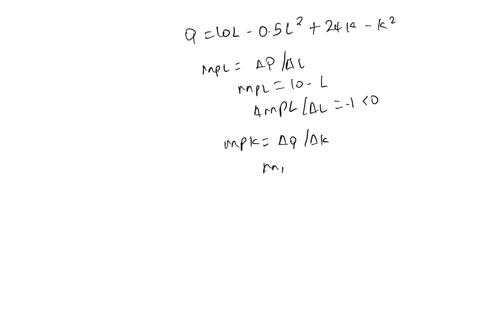 Q = 10L - 0.5L² + 24K - K²
MPL = ΔQ/ΔL
MPL = 10 - L
ΔMPL/ΔL = -1 < 0
MPK = ΔQ/ΔK
m